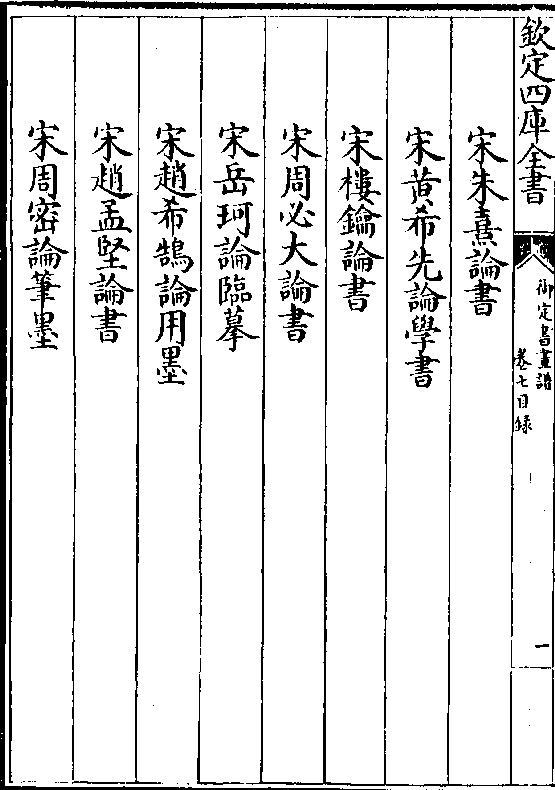 欽定四庫全書
御定書畫譜
卷七目録
一
宋朱熹論書
宋黃希先論學書
宋樓鑰論書
宋周必大論書
宋岳珂論臨摹
宋趙希鵠論用墨
宋趙孟堅論書
宋周密論筆墨